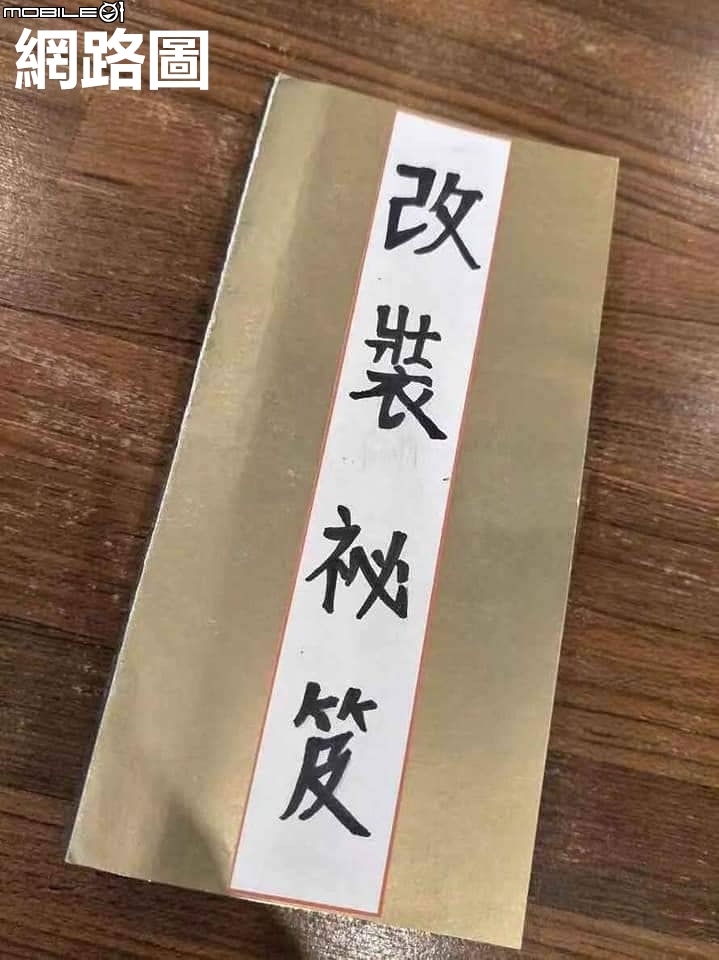 mobile01
網路圖
改裝祕笈